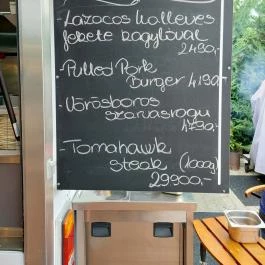 -Lazacos kolleves
fekete kagylóval
2490,-
-Pulled Pork
Burger 4190,-
-Vörösboros
szarvasragu
4790,-
-Tomahawk
steak (1000g)
29900,-